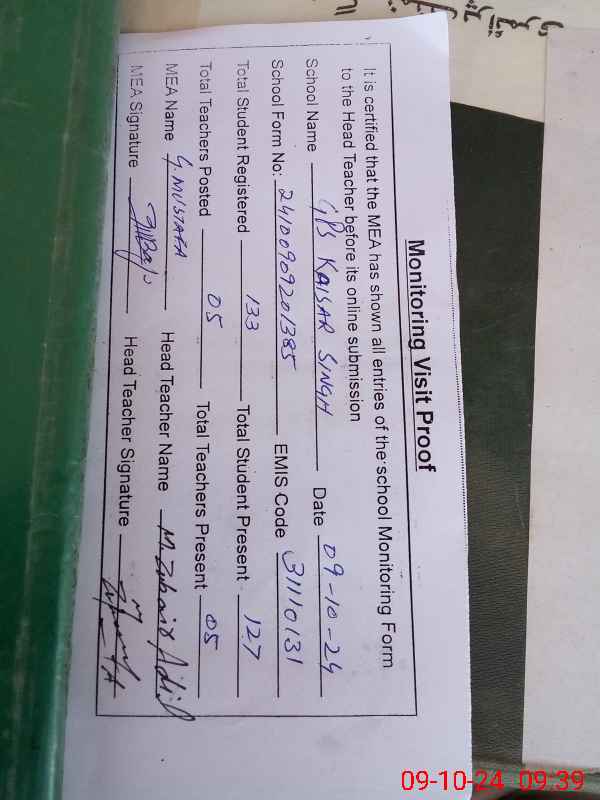 Monitoring Visit Proof
It is certified that the MEA has shown all entries of the school Monitoring Form
to the Head Teacher before its online submission
School Name GPS KAISAR SINGH Date 09-10-24
School Form No: 24100909201385 EMIS Code 31110131
Total Student Registered 133 Total Student Present 127
Total Teachers Posted 05 Total Teachers Present 05
MEA Name G. MUSTAFA Head Teacher Name M. Zubair Adil
MEA Signature Head Teacher Signature
09-10-24 09:39